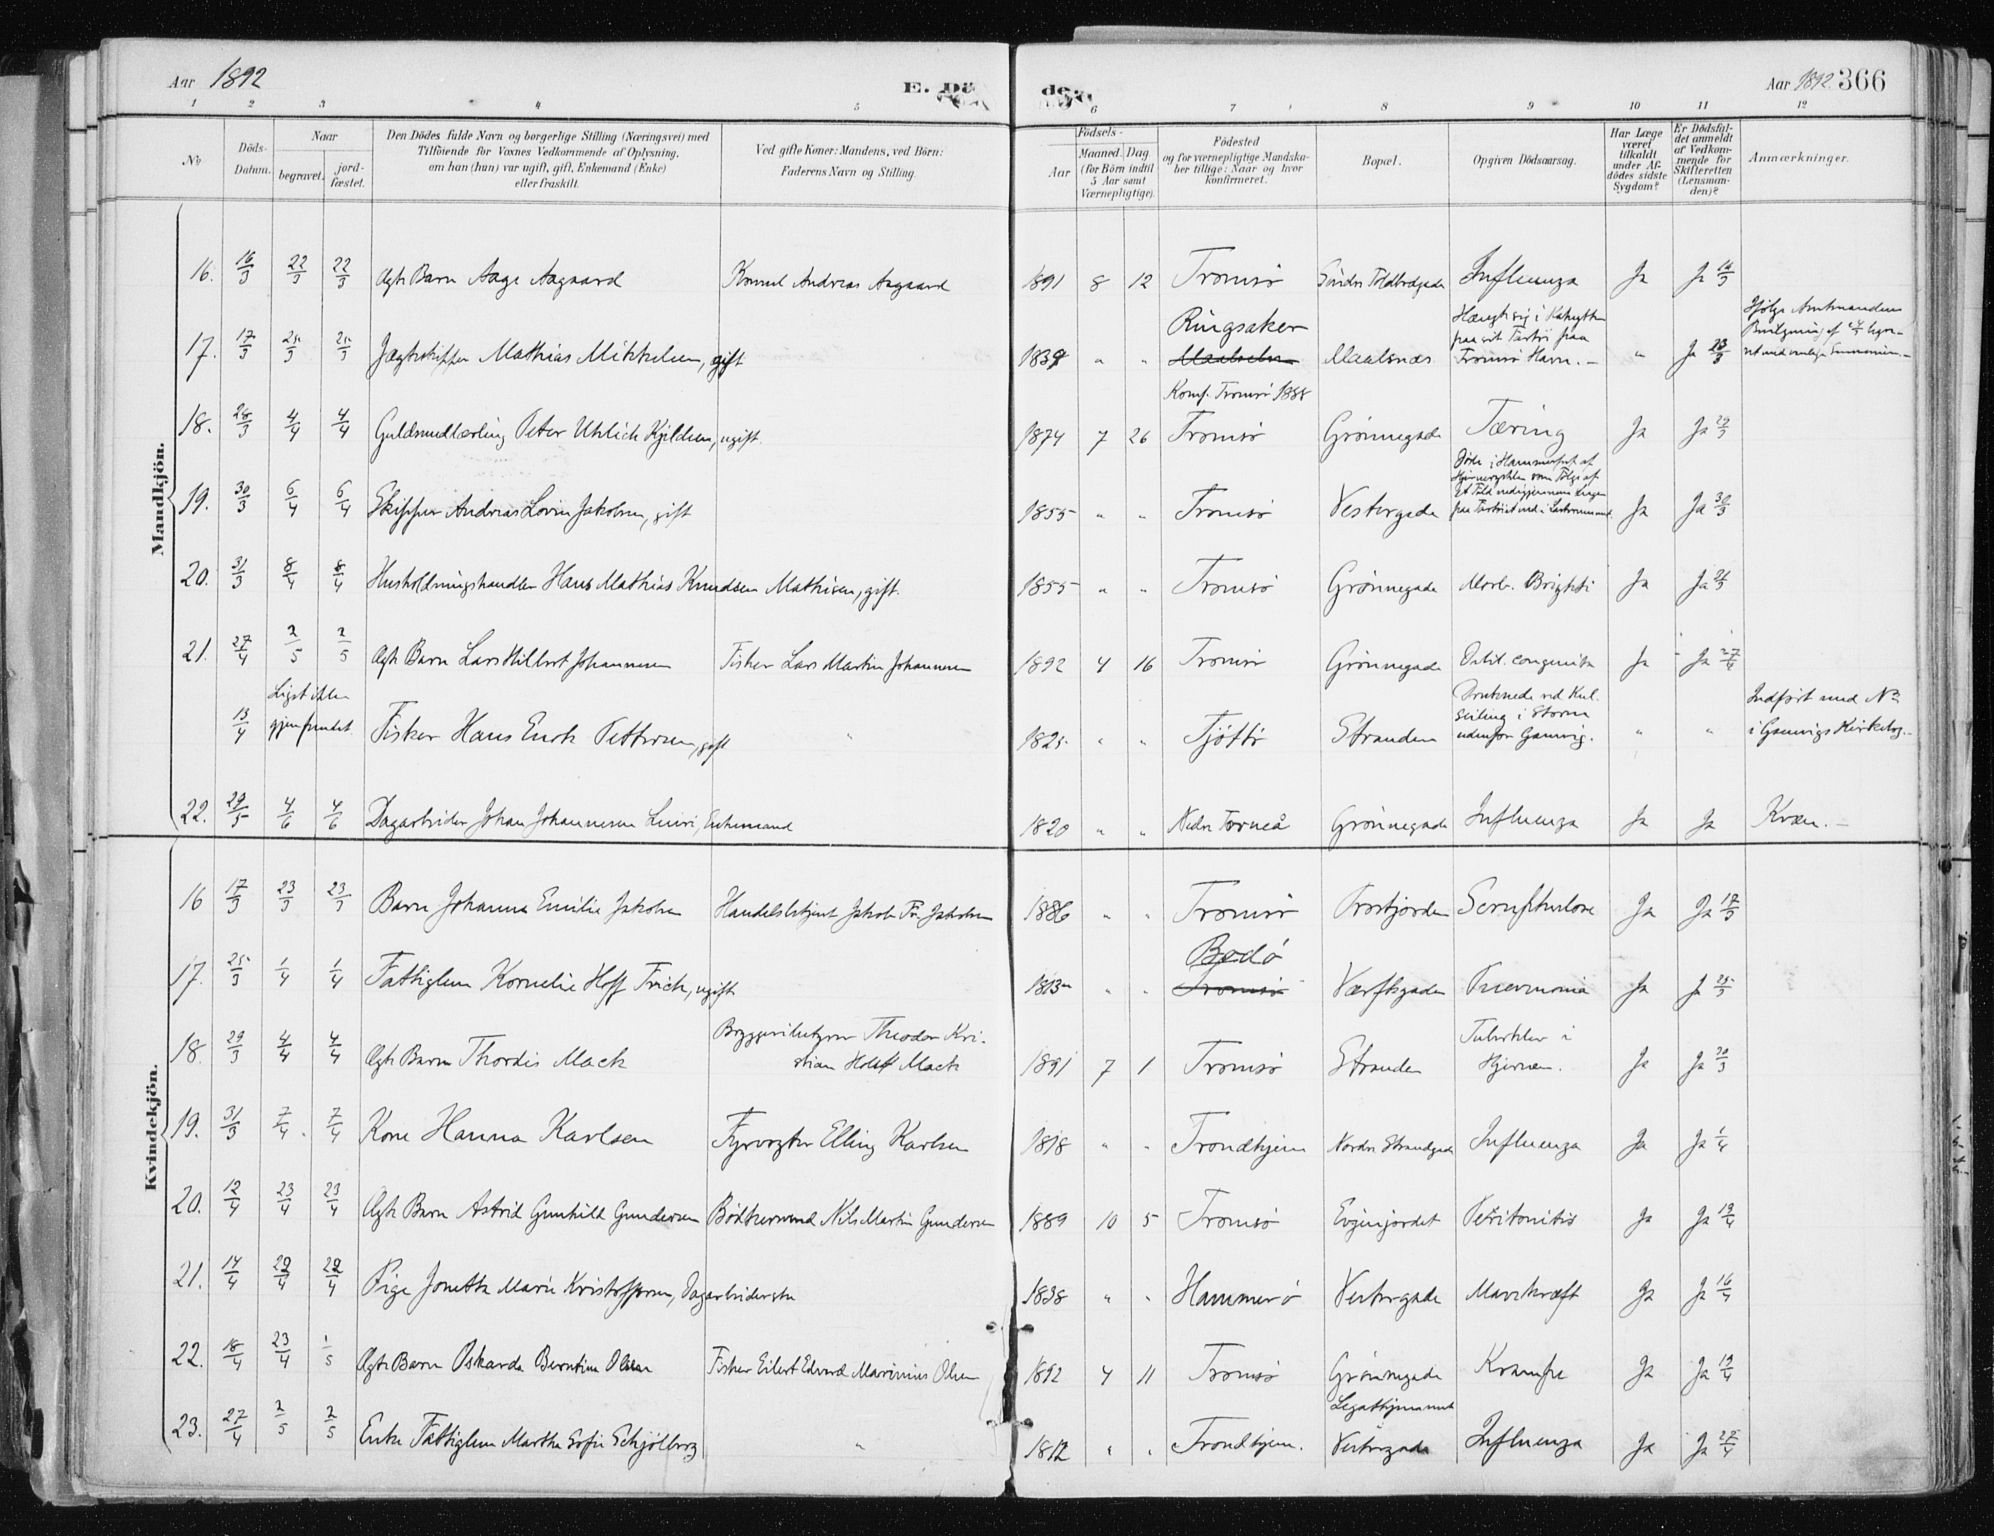 Aar 1892
E. Dö
de.
Aar 1892. 366
1 2 3 4 5 6 7 8 9 10 11 12
No
Döds-
Datum.
Naar
begravet.
jord-
fæstet.
Den Dödes fulde Navn og borgerlige Stilling (Næringsvei) med
Tilföiende for Voxnes Vedkommende af Oplysning,
om han (hun) var ugift, gift, Enkemand (Enke)
eller fraskilt.
Ved gifte Koner: Mandens, ved Börn:
Faderens Navn og Stilling.
Födsels-
Aar
Maaned. Dag
(for Börn indtil
5 Aar samt
Værnepligtige).
Födested
og for værnepligtige Mandska-
ber tillige: Naar og hvor
konfirmeret.
Bopæl.
Opgiven Dödsaarsag.
Har Læge
været
tilkaldt
under Af-
dödes sidste
Sygdom?
Er Dödsfal-
det anmeldt
af Vedkom-
mende for
Skifteretten
(Lensman-
den)?
Anmærkninger.
Mandkjön.
16. 16/3 22/3 22/3 Ægte Barn Aage Aagaard Konsul Andreas Aagaard 1891 8 12 Tromsø Søndre Toldbodgade Influenza Ja Ja 16/3
17. 17/3 25/3 25/3 Jægteskipper Mathias Mikkelsen, gift 1839 " " Ringsaker Maalselv Maalsnæs Hængte sig i Kahytten
paa sit Fartøi paa
Tromsø Havn. - " Ja 23/3 Ifølge Amtmandens
18. 28/3 4/4 4/4 Guldsmedlærling Peter Uhlich Kjeldsen, ugift. 1874 7 26 Konf. Tromsø 1888
Tromsø Grønnegade Tæring Ja Ja 29/3
19. 30/3 6/4 6/4 Skipper Andreas Lovin Jakobsen, gift 1855 " " Tromsø Vestergade Døde i Hammerfest af
Hjernerystelse som Følge af
Ja Ja 30/3
20. 31/3 8/4 8/4 Husholdningshandler Hans Mathias Knudsen Mathisen, gift. 1855 " " Tromsø Grønnegade Morb. Brightii Ja Ja 31/3
21. 27/4 2/5 2/5 Ægte Barn Lars Hilbert Johannesen Fisker Lars Martin Johannesen 1892 4 16 Tromsø Grønnegade Debil. congenita Ja Ja 27/4
13/4 Liget ikke
gjenfundet Fisker Hans Enok Pettersen, gift " 1825 " " Tjøttø Stranden Druknede ved Kul-
seiling i Storm
udenfor Gamvig. " " Indført med No
i Gamvigs Kirkebog.
22. 29/5 4/6 4/6 Dagarbeider Johan Johannesen Leinri, Enkemand 1820 " " Nedre Torneå Grønnegade Influenza Ja Ja Kvæn. -
Kvindekjön.
16 17/3 23/3 23/3 Barn Johanna Emilie Jakobsen Handelsbetjent Jakob Fr. Jakobsen 1886 " " Tromsø Prestjorden Scrofulose Ja Ja 17/3
17. 25/3 1/4 1/4 Fattiglem Kornelie Hoff Frich, ugift 1813 " " Bodø Tromsø Værftsgaden Pneumonia Ja Ja 25/3
18. 29/3 4/4 4/4 Ægte Barn Thordis Mack Bryggeribestyrer Theodor Kri-
stian Holst Mack 1891 7 1 Tromsø Stranden Tuberkler i
Hjernen. Ja Ja 30/3
19. 31/3 7/4 7/4 Kone Hanna Karlsen Fyrvogter Elling Karlsen 1818 " " Trondhjem Nordre Strandgade Influenza Ja Ja 1/4
20. 12/4 23/4 23/4 Ægte Barn Astrid Gunhild Gundersen Bødkersvend Nils Martin Gundersen 1889 10 5 Tromsø Evjenjordet Peritonitis Ja Ja 19/4
21. 14/4 22/4 22/4 Pige Jonetta Marie Kristoffersen, Dagarbeiderske 1838 " " Hammerø Vestergade Mavekræft Ja Ja 16/4
22. 18/4 23/4 1/5 Ægte Barn Oskarda Berntine Olsen Fisker Eilert Edvard Marinius Olsen 1892 4 11 Tromsø Grønnegade Krampe Ja Ja 19/4
23. 27/4 2/5 2/5 Enke Fattiglem Martha Sofie Schjølberg " 1812 " " Trondhjem. Vestergade Influenza Ja Ja 27/4